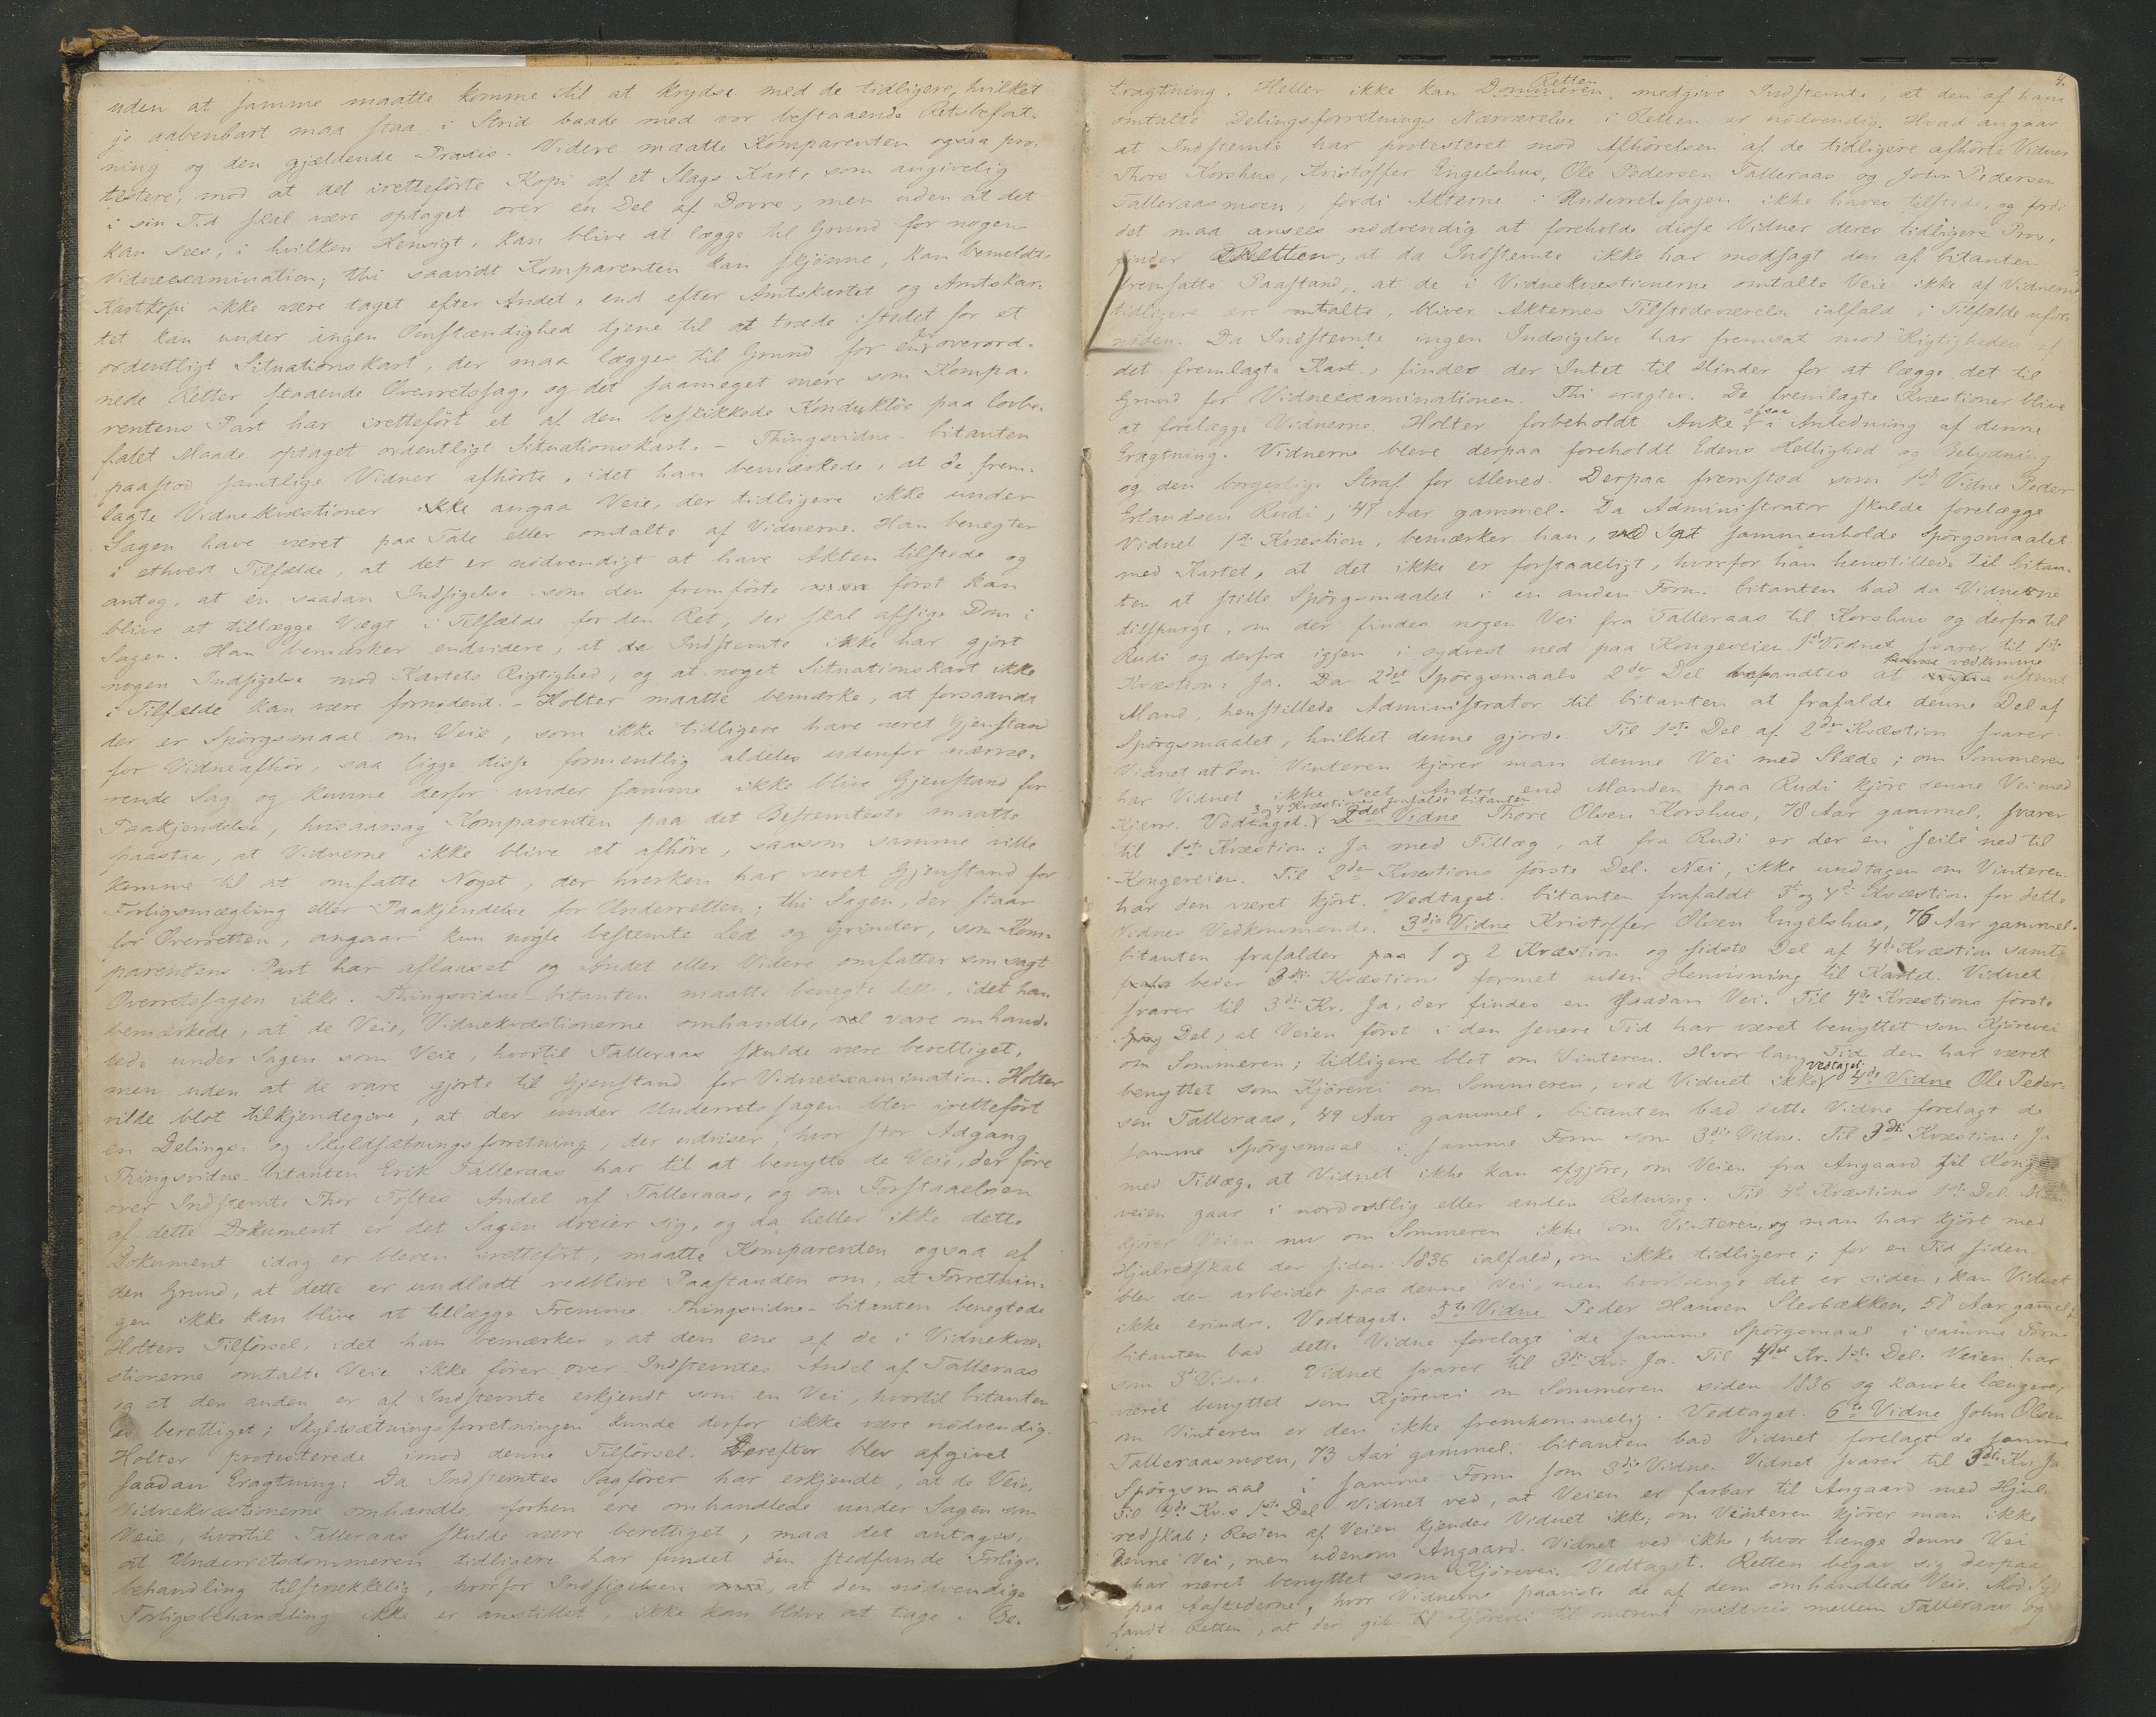 uden at samme maatte komme til at krydse med de tidligere, hvilket
jo aabenbart maa staa i Strid baade med vor bestaaende Retsbefat-
ning og den gjældende Praxis. Videre maatte Komparenten ogsaa pro-
testere, mod at det iretteførte Kopi af et Slags Kart, som angivelig
i sin Tid skal være optaget over en Del af Dovre, men uden at det
kan sees, i hvilken Hensigt, kan blive at lægge til Grund for nogen
Vidneexamination; thi saavidt Komparenten kan skjønne, kan bemeldte
Kartkopi ikke være taget efter Andet, end efter Amtskartet og Amtskar-
tet kan under ingen Omstændighed tjene til at træde istedet for et
ordentligt Situationskart, der maa lægges til Grund for en for overord-
nede Retter staaende Overretssag, og det saameget mere som Kompa-
rentens Part har iretteført et af den beskikkede Konduktør paa lovbe-
falet Maade optaget ordentligt Situationskart. - Thingsvidne-Citanten
paastod samtlige Vidner afhørte, idet han bemærkede, at de frem-
lagte Vidnekvæstioner ikke angaa Veie, der tidligere ikke under
Sagen have været paa Tale eller omtalte af Vidnerne. Han benegter
i ethvert Tilfælde, at det er nødvendigt at have Akten tilstede og
antog, at en saadan Indsigelse som den fremførte først kan
blive at tillægge Vægt i Tilfælde for den Ret, der skal afsige Dom i
Sagen. Han bemærker endvidere, at da Indstemte ikke har gjort
nogen Indsigelse mod Kartets Rigtighed, og at noget Situationskart ikke
i Tilfælde kan være fornødent. - Holter maatte bemærke, at forsaavidt
der er Spørgsmaal om Veie, som ikke tidligere have været Gjenstand
for Vidneafhør, saa ligge disse formentlig aldeles udenfor nærvæ-
rende Sag og kunne derfor under samme ikke blive Gjenstand for
Paakjendelse, hvisaarsag Komparenten paa det Bestemteste maatte
paastaa, at Vidnerne ikke blive at afhøre, saasom samme ville
komme til at omfatte Noget, der hverken har været Gjenstand for
Forligsmægling eller Paakjendelse for Underretten; thi Sagen, der staar
for Overretten, angaar kun nogle bestemte Led og Grinder, som Kom-
parentens Part har aflaaset og Andet eller Videre omfatter som sagt
Overretssagen ikke. Thingsvidne-Citanten maatte benegte dette, idet han
bemærkede, at de Veie, Vidnekvæstionerne omhandle, vare omhand-
lede under Sagen som Veie, hvortil Talleraas skulde være berettiget,
men uden at de vare gjorte til Gjenstand for Vidneexamination. Holter
vilde blot tilkjendegive, at der under Underretssagen blev iretteført
en Delings- og Skyldsætningsforretning, der udviser, hvor stor Adgang
Thingsvidne-Citanten Erik Talleraas har til at benytte de Veie, der føre
over Indstemte Thor Toftes Andel af Talleraas, og om Forstaaelsen
af dette Dokument er det Sagen dreier sig, og da heller ikke dette
Dokument idag er bleven iretteført, maatte Komparenten ogsaa af
den Grund, at dette er undladt vedblive Paastanden om, at Forretnin-
gen ikke kan blive at tillægge Fremme. Thingsvidne-Citanten benegtede
Holters Tilførsel, idet han bemærker, at den ene af de i Vidnekvæ-
stionerne omtalte Veie ikke fører over Indstemtes Andel af Talleraas
og at den anden er af Indstemte erkjendt som en Vei, hvortil Citanten
er berettiget; Skyldsætningsforretningen kunde derfor ikke være nødvendig.
Holter protesterede imod denne Tilførsel. Derefter blev afgivet
saadan Eragtning: Da Indstemtes Sagfører har erkjendt, at de Veie,
Vidnekvæstionerne omhandle, forhen ere omhandlede under Sagen som
Veie, hvortil Talleraas skulde være berettiget, maa det antages,
at Underretsdommeren tidligere har fundet den stedfundne Forligs-
behandling tilstrækkelig, hvorfor Indsigelsen at den nødvendige
Forligsbehandling ikke er anstillet, ikke kan blive at tage i Be-
4.
tragtning. Heller ikke kan Dommeren Retten medgive Indstemte, at den af ham
omtalte Delingsforretnings Nærværelse i Retten er nødvendig. Hvad angaar
at Indstemte har protesteret mod Afhørelsen af de tidligere afhørte Vidner
Thore Korshus, Kristoffer Engelshus, Ole Pedersen Talleraas og John Pedersen
Talleraasmoen, fordi Akterne i Underretssagen ikke haves tilstede, og fordi
det maa ansees nødvendig at foreholde disse Vidner deres tidligere Prov,
finder Retten, at da Indstemte ikke har modsagt den af Citanten
fremsatte Paastand, at de i Vidnekvæstionerne omtalte Veie ikke af Vidnerne
tidligere ere omtalte, bliver Akternes Tilstedeværelse ialfald i Tilfælde ufor-
nøden. Da Indstemte ingen Indsigelse har fremsat mod Rigtigheden af
det fremlagte Kart, findes der Intet til Hinder for at lægge det til
Grund for Vidneexaminationen. Thi eragtes: De fremlagte Kvæstioner blive
at forelægge Vidnerne. Holter forbeholdt Anke ogsaa i Anledning af denne
Eragtning. Vidnerne bleve derpaa foreholdt Edens Hellighed og Betydning
og den borgerlige Straf for Mened. Derpaa fremstod som 1ste Vidne Peder
Erlandsen Rudi, 47 Aar gammel. Da Administrator skulde forelægge
Vidnet 1ste Kvæstion, bemærker han, ved at sammenholde Spørgsmaalet
med Kartet, at det ikke er forstaaeligt, hvorfor han henstillede til Citan-
ten at stille Spørgsmaalet i en anden Form. Citanten bad da Vidnerne
tilspurgt, om der findes nogen Vei fra Talleraas til Korshus og derfra til
Rudi og derfra igjen i sydvest ned paa Kongeveien. 1ste Vidnet svarer til 1ste
Kvæstion: Ja. Da 2det Spørgsmaals 2den Del befandtes at vedkomme ustemt
Mand, henstillede Administrator til Citanten at frafalde denne Del af
Spørgsmaalet, hvilket denne gjorde. Til 1ste Del af 2den Kvæstion svarer
Vidnet at om Vinteren kjører man denne Vei med Slæde; om Sommeren
har Vidnet ikke seet Andre end Manden paa Rudi kjøre denne Vei med
Kjærre. Vedtaget. 3 og 4 Kvæstion frafaldt Citanten 2det Vidne Thore Olsen Korshus, 78 Aar gammel, svarer
til 1ste Kvæstion: Ja med Tillæg, at fra Rudi er der en "Feile" ned til
Kongeveien. Til 2den Kvæstions første Del. Nei, ikke undtagen om Vinteren
har den været kjørt. Vedtaget. Citanten frafaldt 3die og 4de Kvæstion for dette
Vidnes Vedkommende. 3die Vidne Kristoffer Olsen Engelshus, 76 Aar gammel.
Citanten frafalder paa 1 og 2 Kvæstion og sidste Del af 4de Kvæstion samt
beder 3die Kvæstion formet uden Henvisning til Kartet. Vidnet
svarer til 3die Kv. Ja, der findes en saadan Vei. Til 4de Kvæstions første
Del, at Veien først i den senere Tid har været benyttet som Kjørevei
om Sommeren; tidligere blot om Vinteren. Hvor lang Tid den har været
benyttet som Kjørevei om Sommeren, ved Vidnet ikke. Vedtaget. 4de Vidne Ole Peder-
sen Talleraas, 49 Aar gammel. Citanten bad dette Vidne forelagt de
samme Spørgsmaal i samme Form som 3die Vidne. Til 3die Kvæstion: Ja
med Tillæg, at Vidnet ikke kan afgjøre, om Veien fra Angaard til Konge-
veien gaar i nordostlig eller anden Retning. Til 4de Kvæstions 1ste Del.
kjører Veien nu om Sommeren ikke om Vinteren, og man har kjørt med
Hjulredskab der siden 1836 ialfald, om ikke tidligere; for en Tid siden
blev der arbeidet paa denne Vei, men hvorlænge det er siden, kan Vidnet
ikke erindre. Vedtaget. 5te Vidne Peder Hansen Slesbækken, 58 Aar gammel.
Citanten bad dette Vidne forelagt de samme Spørgsmaal i samme Form
som 3die Vidne. Vidnet svarer til 3die Kv. Ja. Til 4de Kv. 1ste Del: Veien har
været benyttet som Kjørevei om Sommeren siden 1836 og kanske længere,
om Vinteren er den ikke fremkommelig. Vedtaget. 6te Vidne John Olsen
Talleraasmoen, 73 Aar gammel. Citanten bad Vidnet forelagt de samme
Spørgsmaal i samme Form som 3die Vidne. Vidnet svarer til 3die Kv: Ja
Til 4de Kv.s 1ste Del Vidnet ved, at Veien er farbar til Angaard med Hjul-
redskab; Resten af Veien kjender Vidnet ikke; om Vinteren kjører man ikke
denne Vei, men udenom Angaard. Vidnet ved ikke, hvor længe denne Vei
har været benyttet som Kjørevei. Vedtaget. Retten begav sig derpaa
paa Aastederne, hvor Vidnerne paaviste de af dem omhandlede Veie. Mod Syd
fandt Retten, at der gik Kjørevei til omtrent midtveis mellem Talleraas og